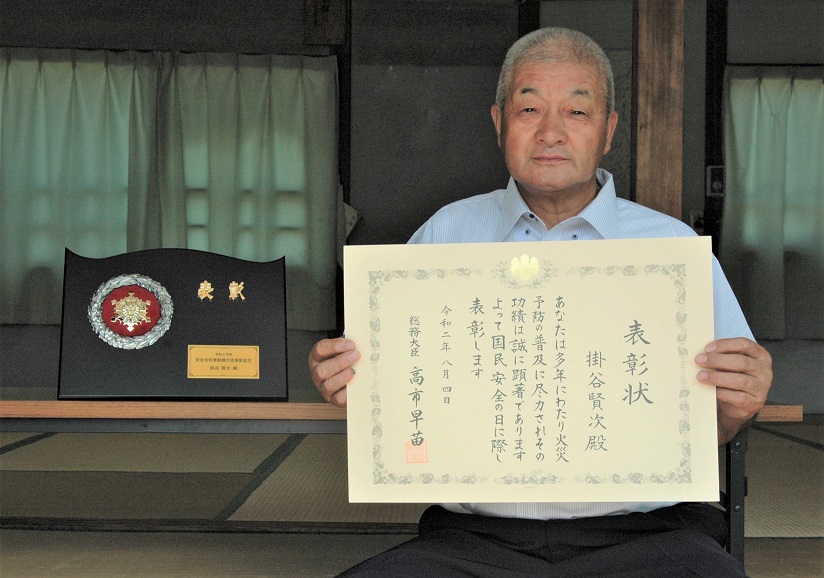 表彰状
掛谷賢次殿
あなたは多年にわたり火災
予防の普及に尽力されその
功績は誠に顕著であります
よって国民安全の日に際し
表彰します
令和二年八月四日
総務大臣 高市早苗
表彰